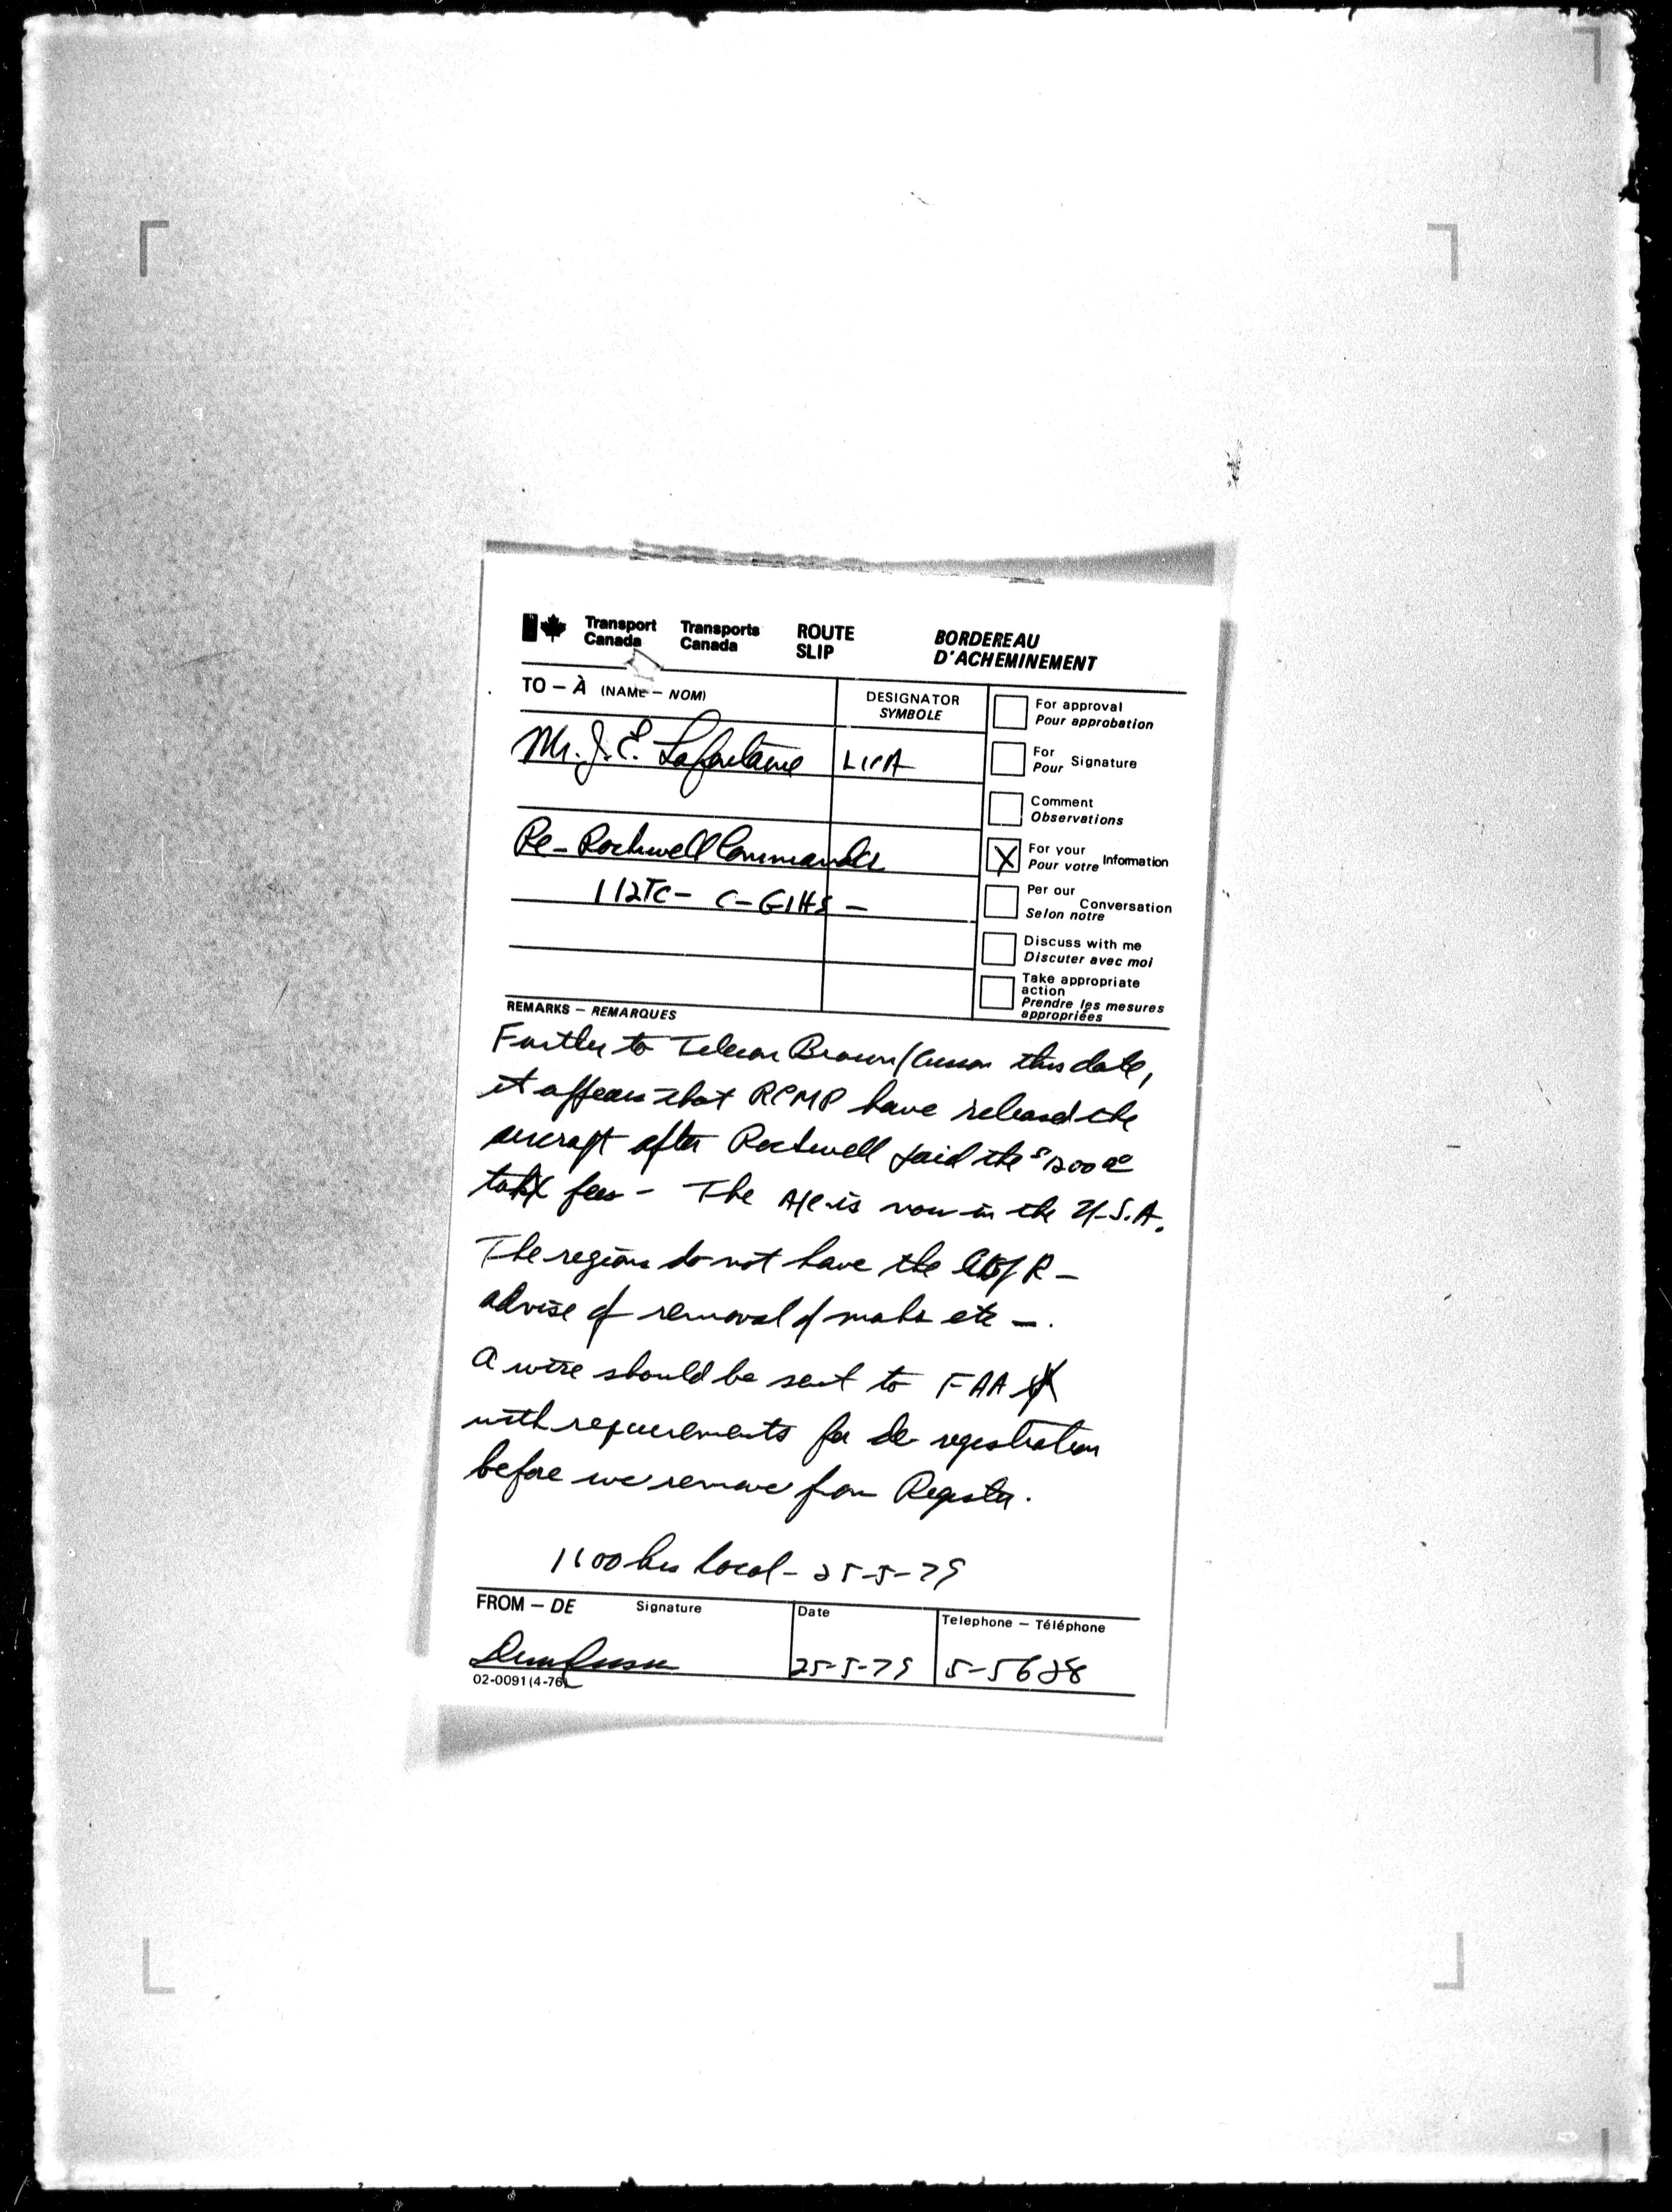 Transport Canada Transports Canada ROUTE SLIP BORDEREAU D'ACHEMINEMENT
TO – À (NAME – NOM)
DESIGNATOR
SYMBOLE
Mr. J. E. Lafontaine
Re- Rockwell Commander
112TC - C-GIHS -
For approval
Pour approbation
For Pour Signature
Comment
Observations
X For your Pour votre Information
Per our Selon notre Conversation
Discuss with me
Discuter avec moi
Take appropriate action
Prendre les mesures appropriées
REMARKS – REMARQUES
Further to Telecon Brown/ this date,
it appears that RCMP have released the
aircraft after Rockwell paid the $1200 00
fees - The A/C is now in the U.S.A.
The region do not have the C of R -
advise of removal of marks etc -.
A wire should be sent to FAA
with requirements for de registration
before we remove from Register.
1100 hrs local - 25-5-79
FROM – DE Signature
Date
Telephone – Téléphone
25-5-79
5-5628
02-0091 (4-76)